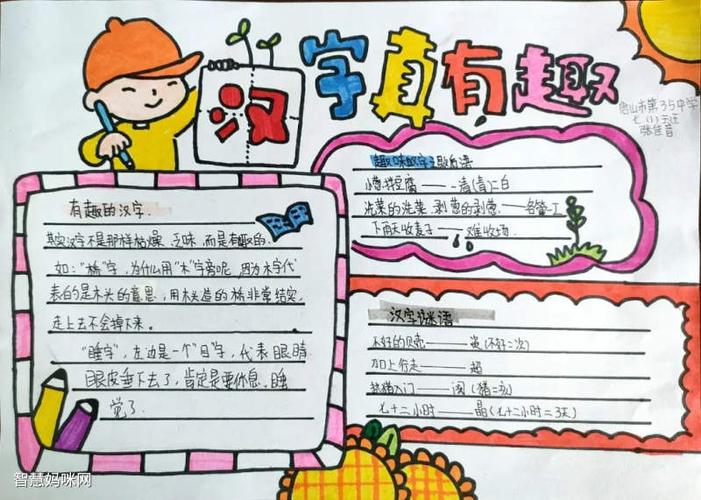 汉字真有趣
唐山市第35中学
七(1)
张佳音
有趣的汉字.
其实汉字不是那样枯燥、乏味,而是有趣的.
如:“桥”字,为什么用“木”字旁呢,因为木字代
表的是木头的意思,用木头造的桥非常结实,
走上去不会掉下来.
“睡字”,左边是一个“目”字,代表眼睛
眼皮垂下去了,肯定是要休息、睡
觉了.
趣味汉字之歇后语
小葱拌豆腐——一清(青)二白
洗菜的洗菜,剥葱的剥葱.——各管一工
下雨天收麦子——难收场.
汉字谜语
不好的贝壳——资(不好=次)
加上行走——超
入门——阂(猪=亥)
七十二小时——晶(七十二小时=3天)
智慧妈咪网